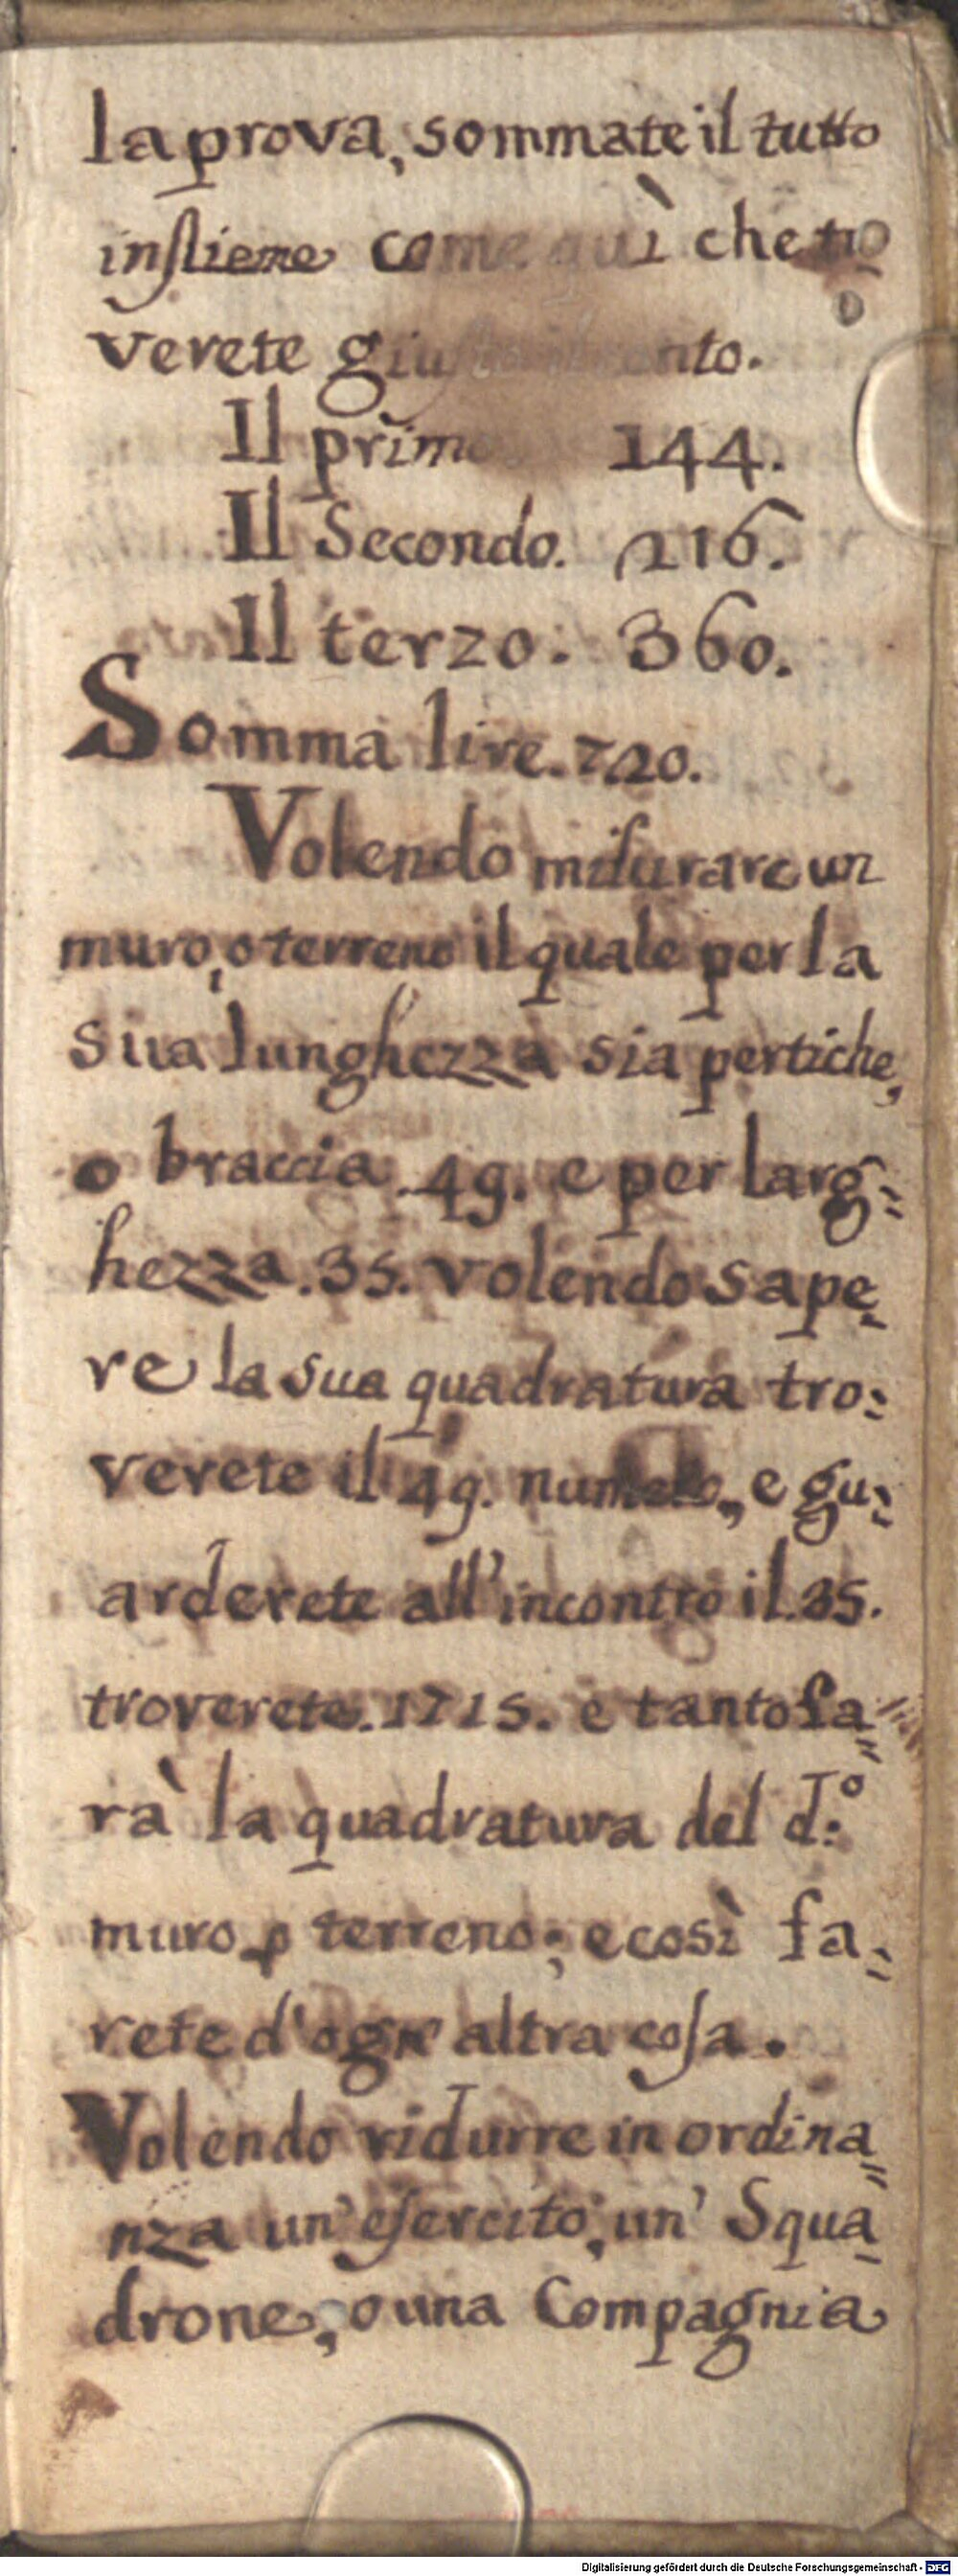 la prova, sommate il tutto
insieme come quì che tro
verete giusto il conto.
Il primo 144.
Il Secondo. 216.
Il terzo. 360.
Somma lire. 720.
Volendo misurare un
muro, o terreno il quale per la
sua lunghezza sia pertiche,
o braccia .49. e per larg=
hezza .35. volendo sape=
re la sua quadratura tro=
verete il 49. numero, e gu=
arderete all'incontro il .35.
troverete .1715. e tanto fa=
rà la quadratura del d.º
muro o terreno; e così fa=
rete d'ogn' altra cosa.
Volendo ridurre in ordina=
nza un' esercito, un' Squa=
drone, o una Compagnia
Digitalisierung gefördert durch die Deutsche Forschungsgemeinschaft - DFG